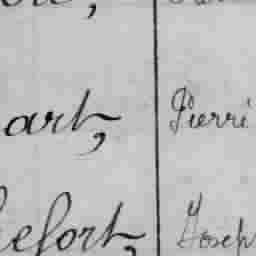 art, Pierre
efort, Joseph